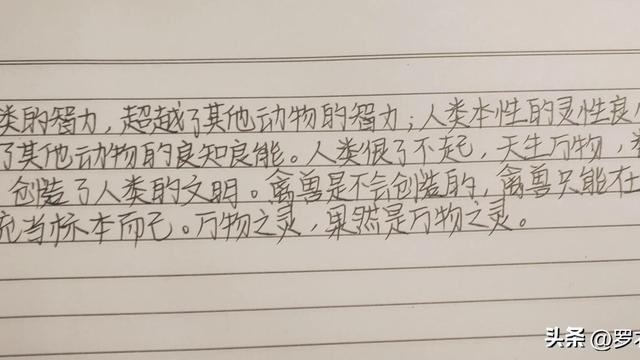 类的智力，超越了其他动物的智力；人类本性的灵性良
了其他动物的良知良能。人类很了不起，天生万物，
创造了人类的文明。禽兽是不会创造的，禽兽只能在
充当标本而已。万物之灵，果然是万物之灵。
头条 @罗